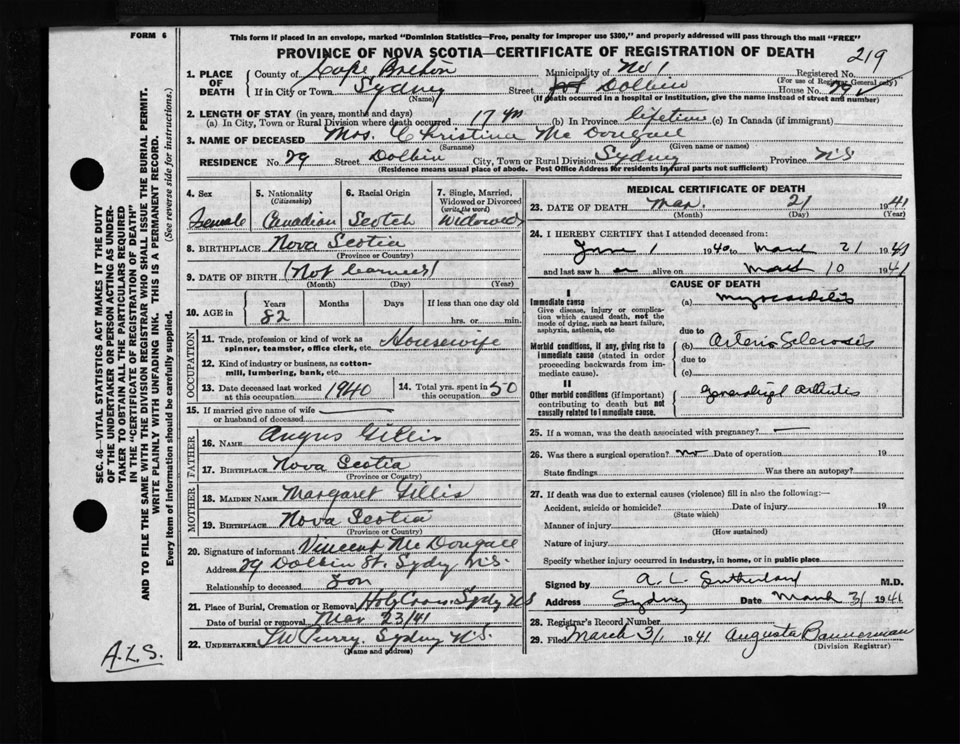 FORM 6
This form if placed in an envelope, marked "Dominion Statistics—Free, penalty for improper use $300," and properly addressed will pass through the mail "FREE"
PROVINCE OF NOVA SCOTIA—CERTIFICATE OF REGISTRATION OF DEATH 219
1. PLACE OF DEATH County of Cape Breton Municipality of No 1 Registered No.
(For use of Registrar General only)
If in City or Town Sydney Street Dolbin House No. 29
(Name) (If death occurred in a hospital or institution, give the name instead of street and number)
2. LENGTH OF STAY (in years, months and days)
(a) In City, Town or Rural Division where death occurred 17 (b) In Province lifetime (c) In Canada (if immigrant)
3. NAME OF DECEASED Mrs. Christina Mc Dougall
(Surname) (Given name or names)
RESIDENCE No. 29 Street Dolbin City, Town or Rural Division Sydney Province N.S
(Residence means usual place of abode. Post Office Address for residents in rural parts not sufficient)
4. Sex Female
5. Nationality (Citizenship) Canadian
6. Racial Origin Scotch
7. Single, Married, Widowed or Divorced (write the word) Widowed
8. BIRTHPLACE Nova Scotia
(Province or Country)
9. DATE OF BIRTH (Not learned)
(Month) (Day) (Year)
10. AGE in Years 82 Months Days If less than one day old hrs. or min.
OCCUPATION
11. Trade, profession or kind of work as spinner, teamster, office clerk, etc. Housewife
12. Kind of industry or business, as cotton-mill, lumbering, bank, etc.
13. Date deceased last worked at this occupation 1940
14. Total yrs. spent in this occupation 50
15. If married give name of wife or husband of deceased
FATHER
16. NAME Angus Gillis
17. BIRTHPLACE Nova Scotia
(Province or Country)
MOTHER
18. MAIDEN NAME Margaret Gillis
19. BIRTHPLACE Nova Scotia
(Province or Country)
20. Signature of informant Vincent McDougall
Address 29 Dolbin St. Sydy N.S.
Relationship to deceased Son
21. Place of Burial, Cremation or Removal Holy Cross Sydy NS
Date of burial or removal Mar 23/41
22. UNDERTAKER Sydney N.S.
(Name and address)
MEDICAL CERTIFICATE OF DEATH
23. DATE OF DEATH Mar. 21 1941
(Month) (Day) (Year)
24. I HEREBY CERTIFY that I attended deceased from:
June 1 1940 to March 21 1941
and last saw h er alive on March 10 1941
CAUSE OF DEATH
I
Immediate cause
Give disease, injury or complication which caused death, not the mode of dying, such as heart failure, asphyxia, asthenia, etc
(a) Myocarditis
due to
Morbid conditions, if any, giving rise to immediate cause (stated in order proceeding backwards from immediate cause).
(b) Arterio Sclerosis
due to
(c)
II
Other morbid conditions (if important) contributing to death but not causally related to immediate cause.
25. If a woman, was the death associated with pregnancy? —
26. Was there a surgical operation? no Date of operation 19
State findings Was there an autopsy?
27. If death was due to external causes (violence) fill in also the following:—
Accident, suicide or homicide? Date of injury 19
(State which)
Manner of injury
(How sustained)
Nature of injury
Specify whether injury occurred in industry, in home, or in public place
Signed by A. L. Sutherland M.D.
Address Sydney Date March 31 1941
28. Registrar's Record Number
29. Filed March 31 1941 Augusta Bannerman
(Division Registrar)
SEC. 46—VITAL STATISTICS ACT MAKES IT THE DUTY
OF THE UNDERTAKER OR PERSON ACTING AS UNDER-
TAKER TO OBTAIN ALL THE PARTICULARS REQUIRED
IN THE "CERTIFICATE OF REGISTRATION OF DEATH"
AND TO FILE THE SAME WITH THE DIVISION REGISTRAR WHO SHALL ISSUE THE BURIAL PERMIT.
WRITE PLAINLY WITH UNFADING INK. THIS IS A PERMANENT RECORD.
Every item of information should be carefully supplied. (See reverse side for instructions.)
A.L.S.